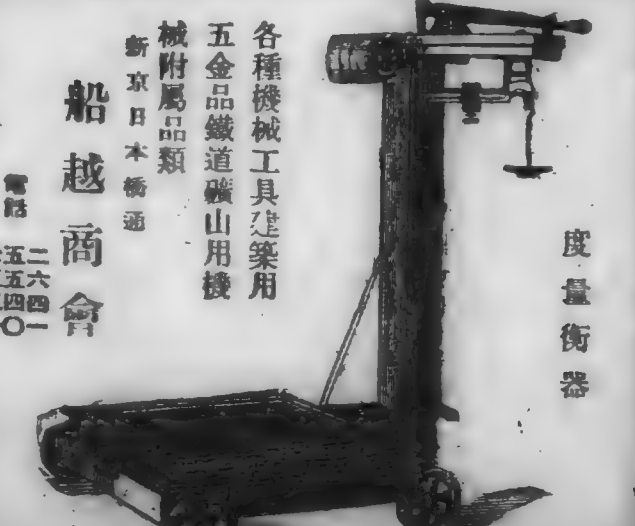 度量衡器
各種機械工具建築用
五金品鐵道礦山用機
械附屬品類
新京日本橋通
船越商會
電話
二六四一
五五四〇